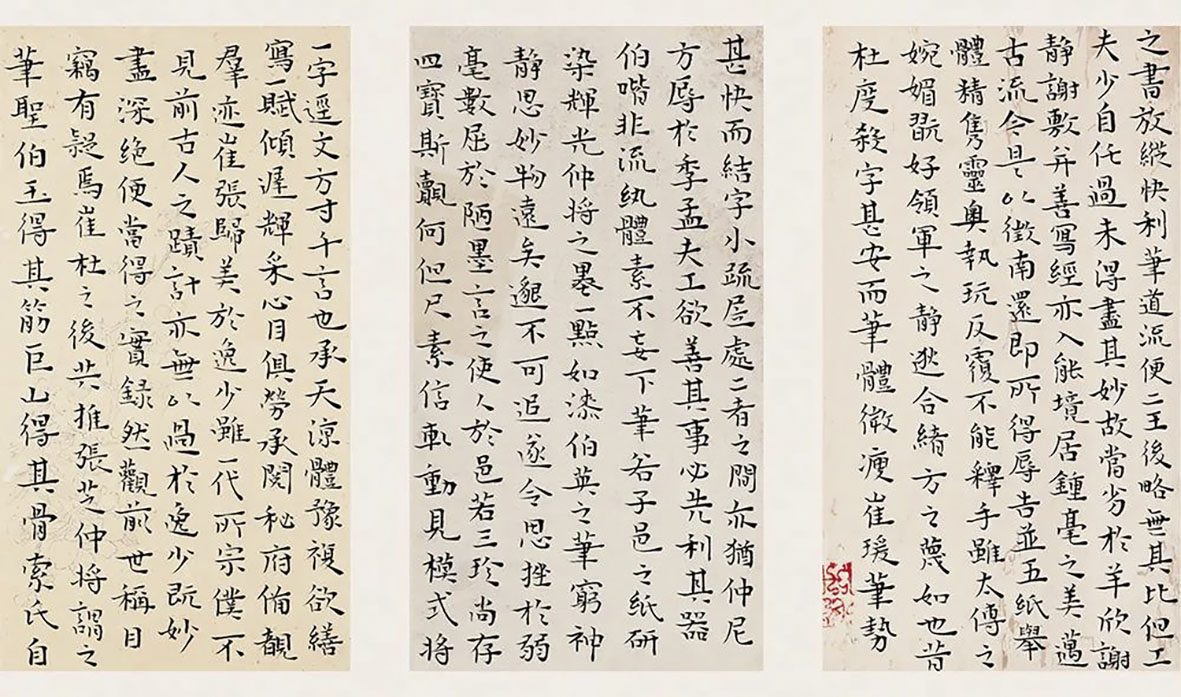 之書放縱快利筆道流便二王後略無其比但工
夫少自任過未得盡其妙故當劣於羊欣謝
静謝敷并善寫經亦入能境居鍾毫之美邁
古流今是以徵南還即所得辱告並五紙舉
體精雋靈奥執玩反覆不能釋手雖太傅之
婉媚翫好領軍之静逖合緒方之蔑如也昔
杜度殺字甚安而筆體微瘦崔瑗筆勢
甚快而結字小疏居處二者之間亦猶仲尼
方辱於季孟夫工欲善其事必先利其器
伯喈非流紈體素不妄下筆若子邑之紙研
染輝光仲將之墨一點如漆伯英之筆窮神
静思妙物遠矣邈不可追遂令思挫於弱
毫數屈於陋墨言之使人於邑若三珍尚存
四寶斯覿何但尺素信札動見模式將
一字逕文方寸千言也承天涼體豫複欲繕
寫一賦傾遲輝采心目俱勞承閱秘府備覩
羣迹崔張歸美於逸少雖一代所宗僕不
見前古人之蹟計亦無以過於逸少既妙
盡深绝便當得之實録然觀前世稱目
竊有疑焉崔杜之後共推張芝仲將謂之
筆聖伯玉得其筋巨山得其骨索氏自